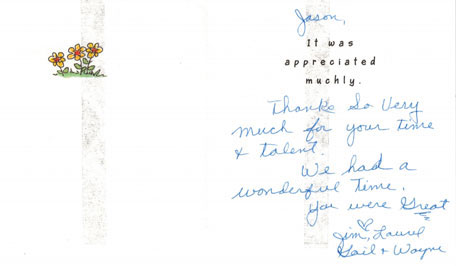 Jason,
It was
appreciated
muchly.
Thanks So Very
much for your time
& talent.
We had a
wonderful time.
You were Great
Jim, Laurel
Gail & Wayne